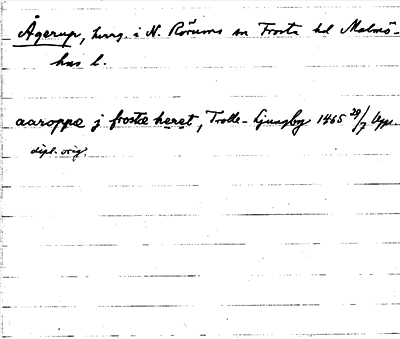 Ågerup, herrg. i N. Rörums sn Frosta hd Malmö-
hus l.
aaroppæ j frostæ heret, Trolle-Ljungby 1465 29/7
dipl. orig.